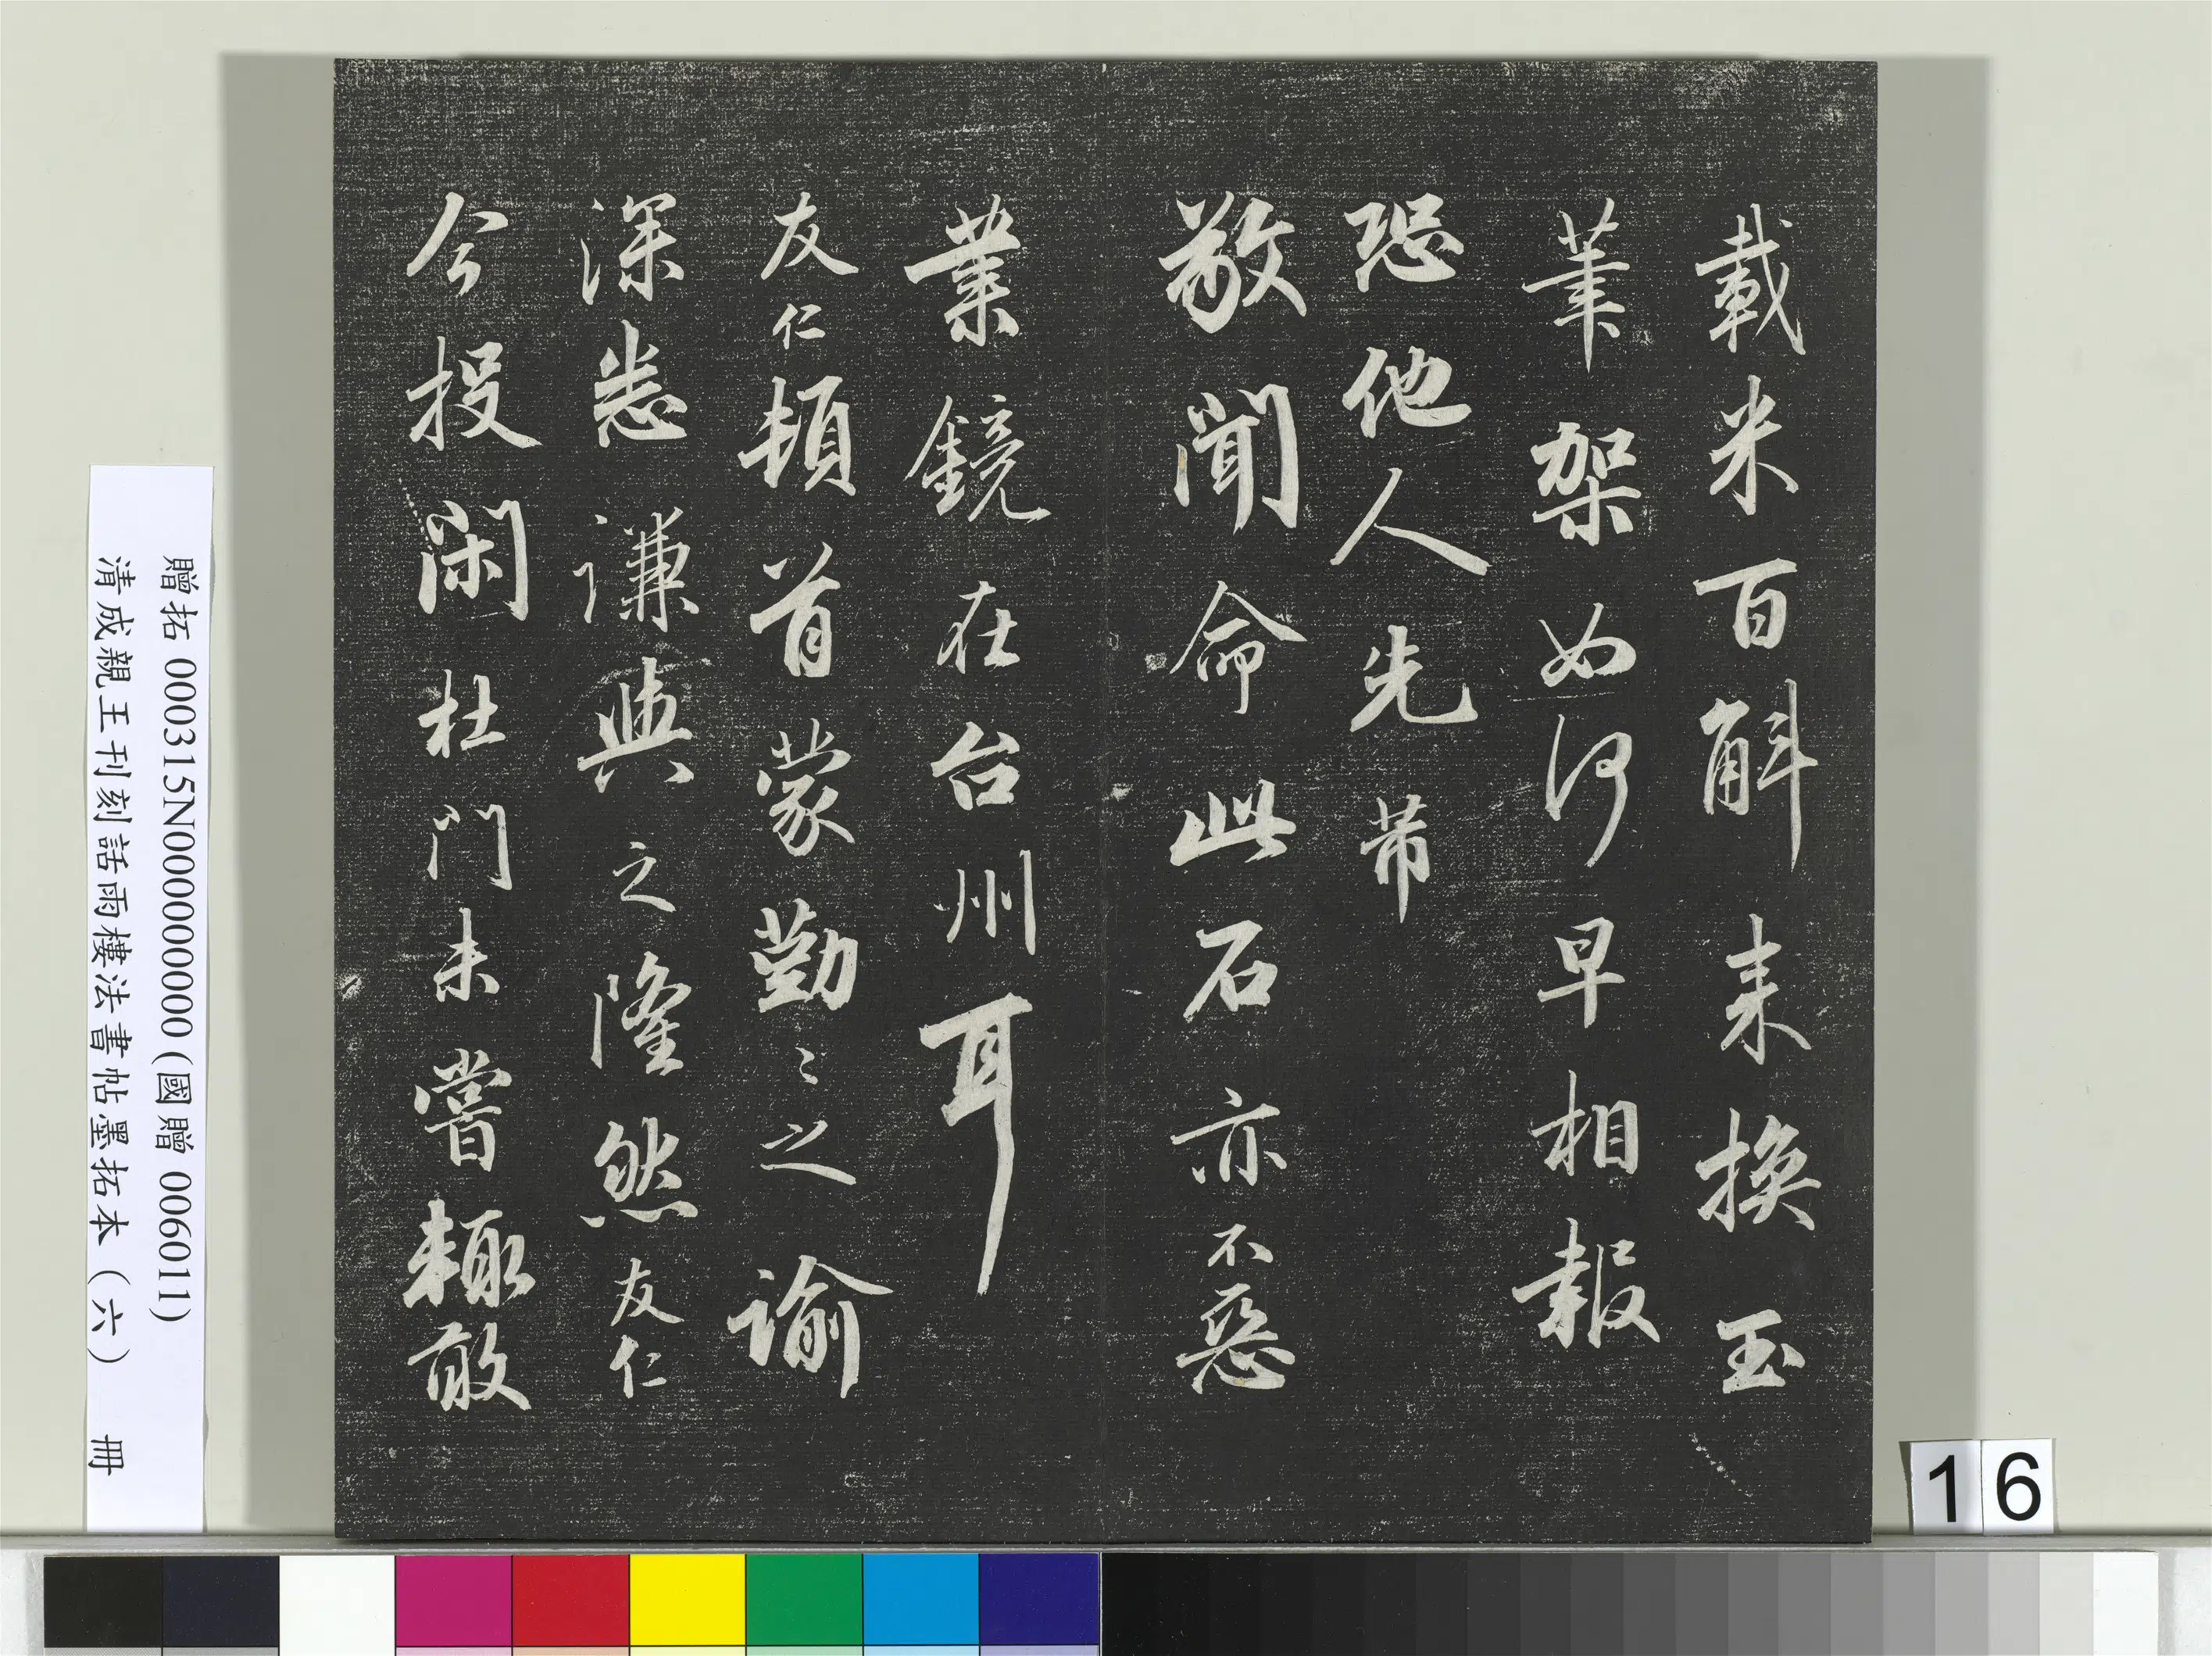 載米百斛来換玉
筆架如何早相報
恐他人先帶
敬聞命此石亦不惡
業鏡在台州耳
友仁頓首蒙勤〻之諭
深悉謙與之隆然友仁
今投閑杜門未嘗輙敢
贈拓 000315N000000000 (國贈 006011)
清成親王刊刻話雨樓法書帖墨拓本（六） 冊
16